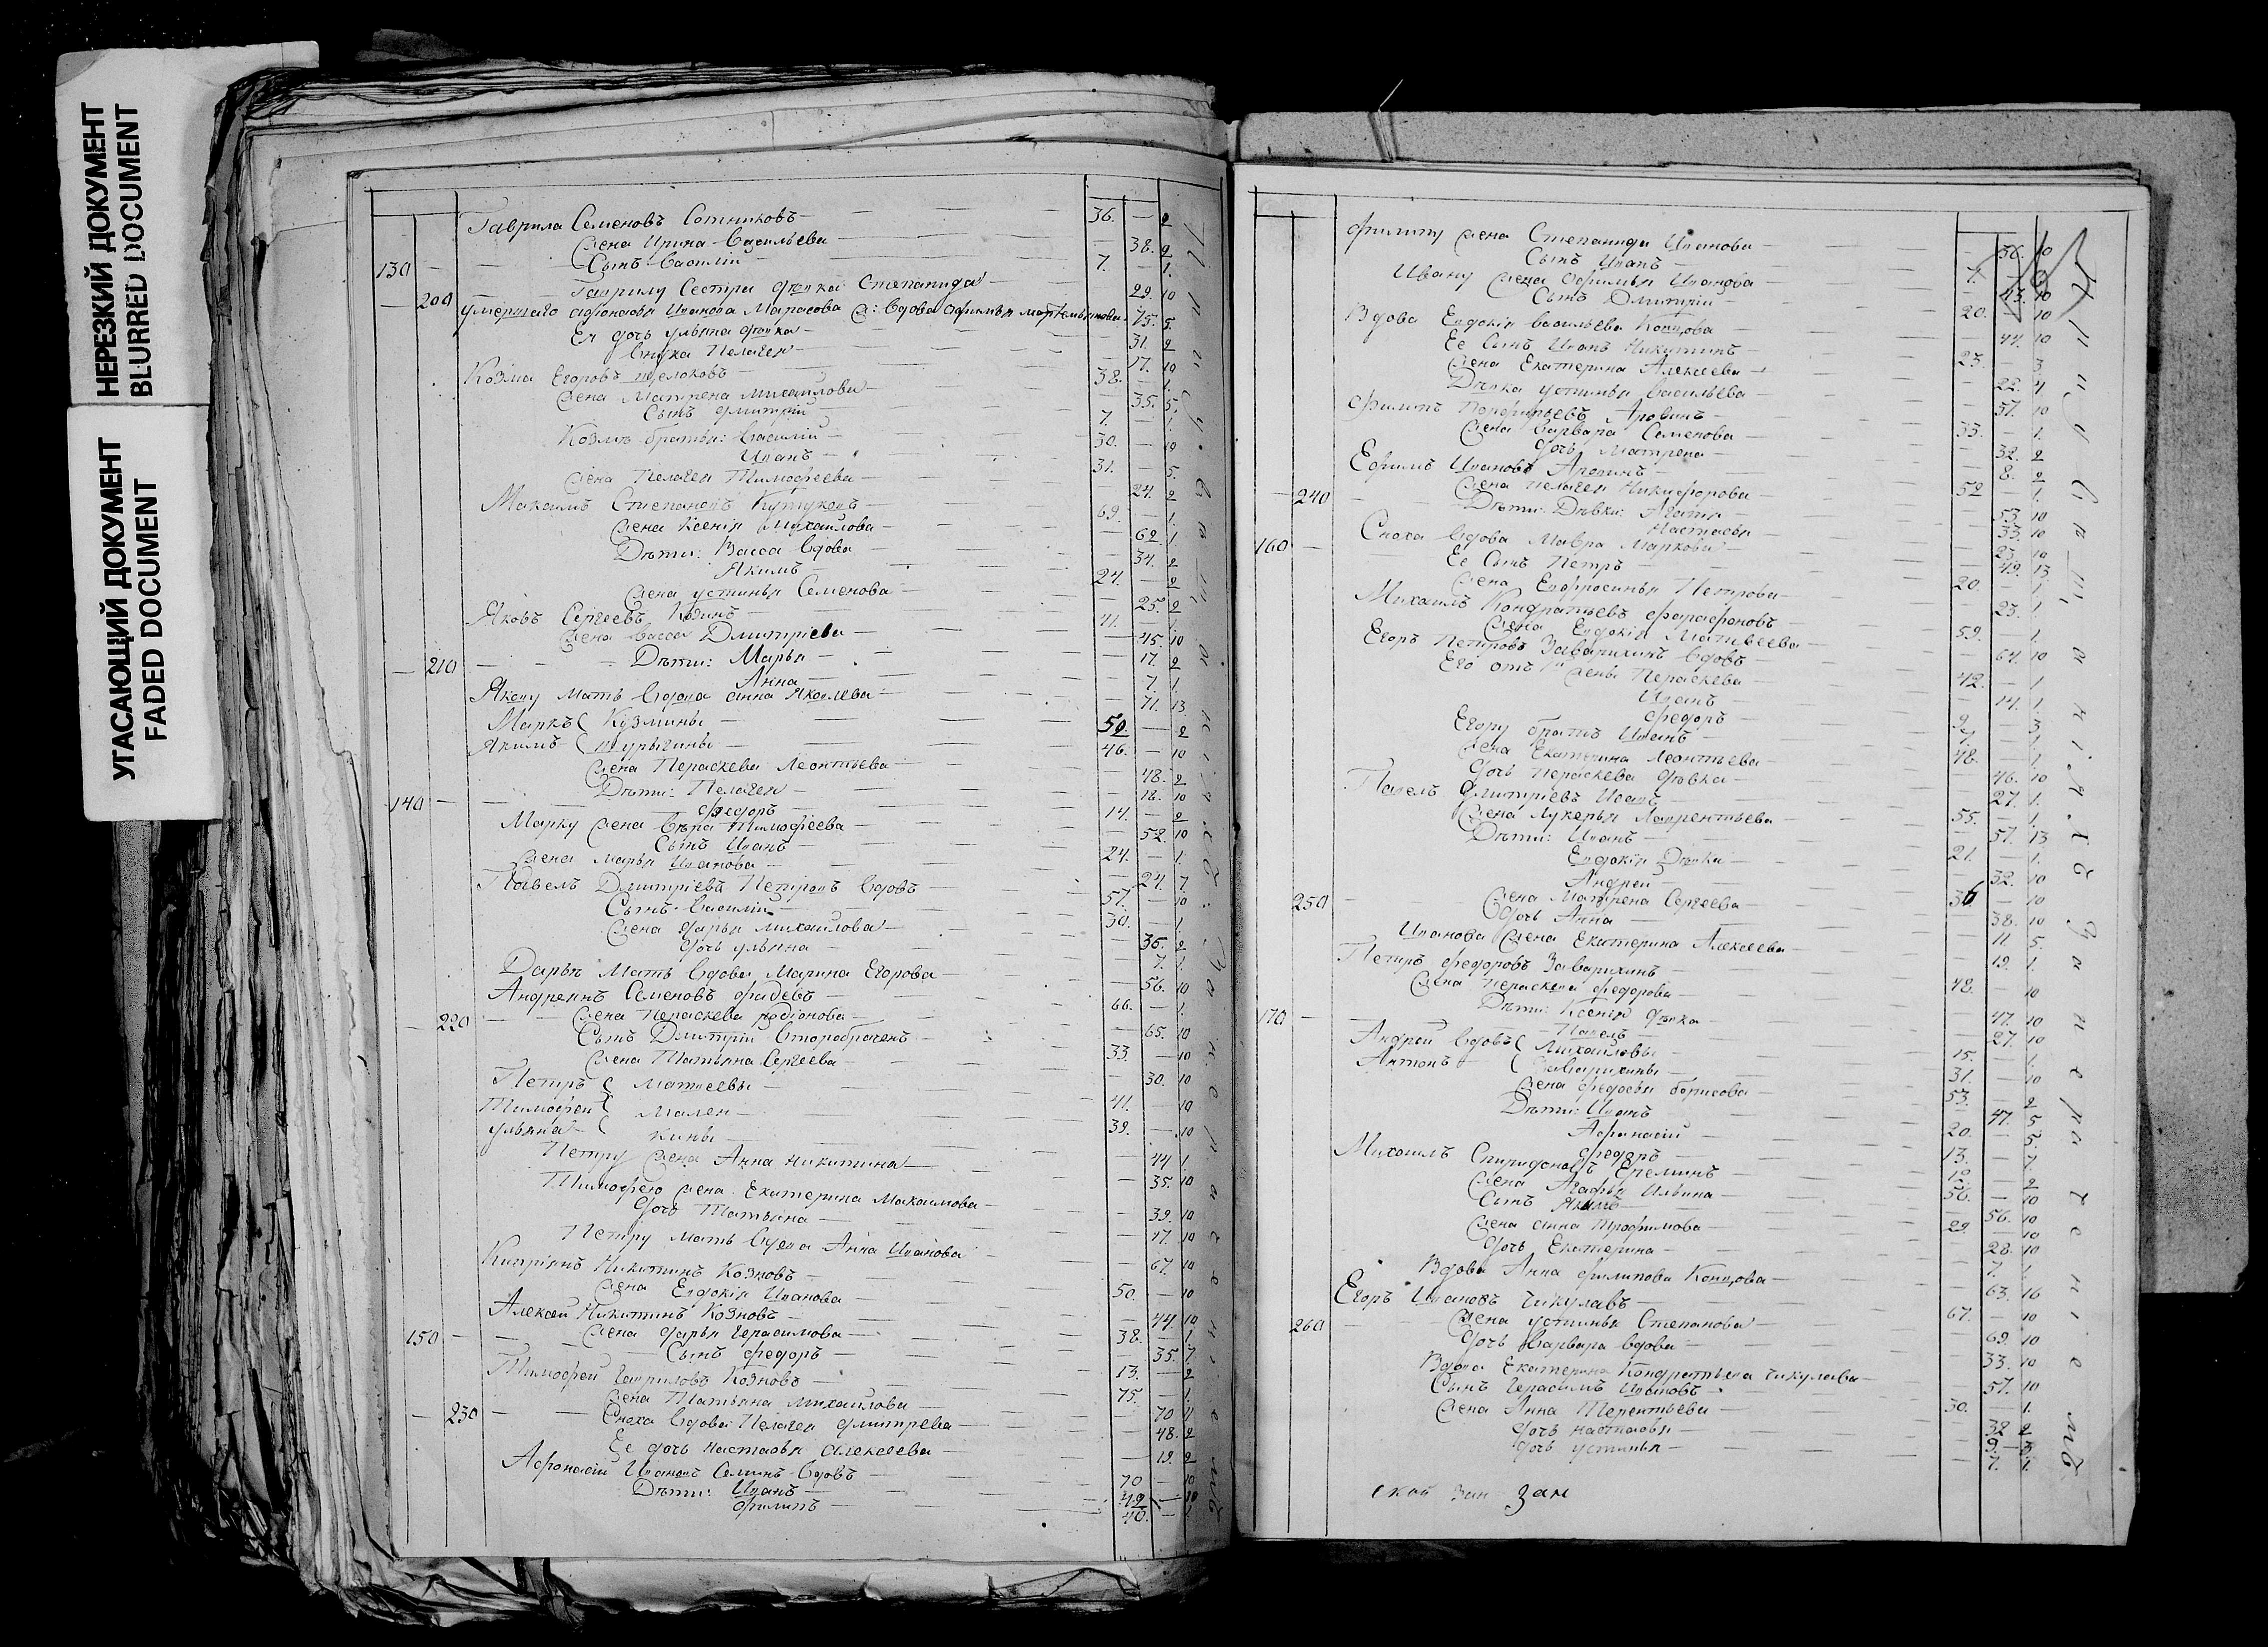 НЕРЕЗКИЙ ДОКУМЕНТ
BLURRED DOCUMENT
УГАСАЮЩИЙ ДОКУМЕНТ
FADED DOCUMENT
Гаврила Семеновъ Сотниковъ 36. — 2
Жена Ирина Васильева — 38. 2
130 Сынъ Василій 7. — 1.
200 Гаврилу Сестра дѣвка Степанида — 29. 10
умершаго Афонасья Иванова Марасова ж: вдова Афимья Мартемьянова — 75. 5.
Ея дочь ульяна дѣвка — 31. 2
Внука Пелагея — 17. 10
Козма Егоровъ 38. — 1.
Жена Матрена Михайлова — 35. 5.
Сынъ Дмитрій 7. — 1.
Козмѣ братья: Василій 30. — 10
Иванъ 31. — 5.
Жена Пелагея Тимофеева — 24. 2
Максимъ Степановъ 69. — 1.
Жена Ксенія Михайлова — 62. 1
Дѣти: Васса вдова — 34. 2
Якимъ 24. — 2
Жена устинья Семенова — 25. 2
Яковъ Сергеевъ 41. — 1.
Жена Васса Дмитріева — 45. 10
210 Дѣти: Марья — 17. 2
Анна — 7. 1.
Якову мать вдова Анна Яковлева — 71. 13.
Маркъ Козмины 50. — 2
Якимъ 46. — 10
Жена Пераскева Леонтьева — 48. 2
Дѣти: Пелагея — 18. 10
140 Федоръ 14. — 2
Марку жена Вѣра Тимофеева — 52. 10
Сынъ Иванъ 24. — 1.
Жена Марья Иванова — 24. 7.
Павелъ Дмитріевъ Петровъ вдовъ 57. — 10
Сынъ Василій 30. — 1
Жена Дарья Михайлова — 36. 2
Дочь ульяна — 7. 1.
Дарьѣ мать вдова Марина Егорова — 56. 10
Андреянъ Семеновъ Фадѣевъ 66. — 1.
220 Жена Пераскева родіонова — 65. 10
Сынъ Дмитрій второбраченъ 33. — 10
Жена Татьяна Сергеева — 30. 10
Петръ Матвеевы 41. — 10
Тимофей 39. — 10
ульяна
Петру жена Анна Никитина — 44 1.
Тимофею жена Екатерина Максимова — 35. 10
Дочь Татьяна — 39. 10
Петру мать вдова Анна Иванова — 67. 10
Кипріянъ Никитинъ Козновъ 50. — 10
Жена Евдокія Иванова — 44. 10
Алексей Никитинъ Козновъ 38. — 1.
150 Жена Дарья Герасимова — 35. 7.
Сынъ Федоръ 13. — 2
Тимофей Гавриловъ Козновъ 75. — 1.
Жена Татьяна Михайлова — 70 1.
230 Сноха вдова Пелагея Дмитрева — 48. 2
Ее дочь Настасья Алексеева — 19. 2
Афонасій Ивановъ Семинъ вдовъ 70 — 10
Дѣти: Иванъ 42 — 10
Филипъ 40. — 1.
Филипу жена Степанида Иванова — 36. 10
Сынъ Иванъ
Ивану жена Афимья Иванова
Сынъ Дмитрій 20. — 10
Вдова Евдокія Васильева — 44. 10
Ее Сынъ Иванъ Никитинъ 23. — 3
Жена Екатерина Алексеева — 22. 4
Дѣвка устинья Васильева — 57. 10
Филипъ Порфирьевъ 33. — 1.
Жена Варвара Семенова — 32. 2
Дочь Матрена — 8. 2
Ефимъ Ивановъ 52 — 1.
240 Жена Пелагея Никифорова — 53. 10
Дѣти: Дѣвки: Агафья — 33. 10
Настасья — 23. 10
160 Сноха вдова Мавра Маркова — 49. 13
Ее Сынъ Петръ 20. — 1.
Жена Евфросинья Петрова — 23. 1
Михаилъ Кондратьевъ Фарафоновъ 59. — 1.
Жена Евдокія Матвеева — 64. 10
Егоръ Петровъ Заварихинъ вдовъ 42. — 1
Его отъ 1й жены Пераскева — 14. 1.
Иванъ 9. — 3
Федоръ 7. — 1.
Егору братъ Иванъ 48. — 1.
Жена Екатерина Леонтьева — 46. 10
Дочь Пераскева дѣвка — 27. 1.
Павелъ Дмитріевъ 55. — 1.
Жена Лукерья Лаврентьева — 57. 13
Дѣти: Иванъ 21. — 1.
Евдокія дѣвка — 32. 10
Андрей 36 — 10
250 Жена Матрена Сергеева — 38. 10
Дочь Анна — 11 5.
Иванова жена Екатерина Алексеева — 19. 1.
Петръ Федоровъ Заварихинъ 48. — 10
Жена Пераскева Федорова — 47. 10
Дѣти: Ксенія дѣвка — 27. 10
170 Павелъ 15. — 1.
Андрей вдовъ Михайловы 31. — 10
Антонъ Заварихины 53. — 2
Жена Федосья Борисова — 47. 5
Дѣти: Иванъ 20. — 5.
Афонасій 13. — 7.
Федоръ 12. — 2
Михаилъ Спиридоновъ Ереминъ 56. — 10
Жена Агафья Ильина — 56. 10
Сынъ Якимъ 29. — 10
Жена Анна Трофимова — 28. 10
Дочь Екатерина — 7. 1.
Вдова Анна Филипова — 63. 16
Егоръ Ивановъ Чикулавъ 67. — 10
260 Жена устинья Степанова — 69. 10
Дочь Варвара вдова — 33. 10
Вдова Екатерина Кондратьева Чикулава — 57. 10
Сынъ Герасимъ Ивановъ 30. — 1.
Жена Анна Терентьева — 32 2
Дочь Настасья — 9. 3.
Дочь устинья — 7. 1.